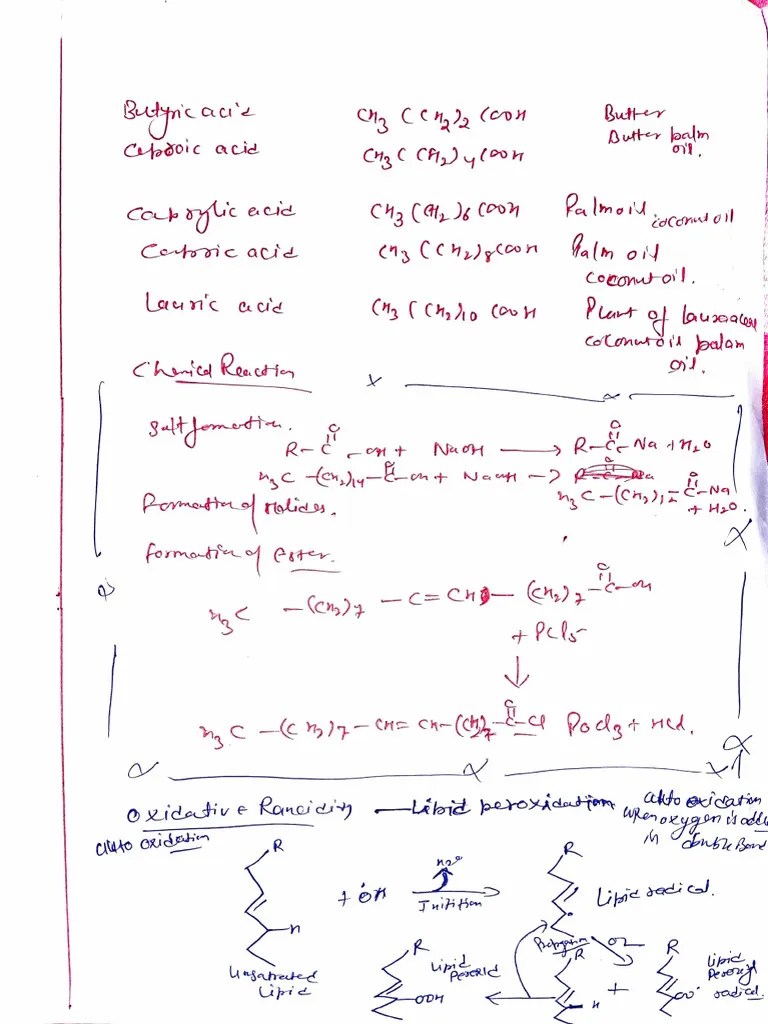 Butyric acid CH3 (CH2)2 COOH Butter
Caproic acid CH3 (CH2)4 COOH Butter palm oil.
Caprylic acid CH3 (CH2)6 COOH Palm oil coconut oil
Capric acid CH3 (CH2)8 COOH Palm oil coconut oil.
Lauric acid CH3 (CH2)10 COOH Plant of
coconut oil palam oil.
Chemical Reaction
Salt formation.
R-C-OH + NaOH → R-C-Na + H2O
H3C-(CH2)14-C-OH + NaOH →
H3C-(CH2)12-C-Na
+ H2O.
Formation of Halides.
Formation of Ester.
H3C -(CH2)7 -C=CH-(CH2)7-C-OH
+ PCl5
↓
H3C -(CH2)7-CH=CH-(CH2)7-C-Cl POCl3 + HCl.
Oxidative Rancidity — Lipid peroxidation
auto oxidation
when oxygen is added
in double Bond
auto oxidation
R
+ OH
H2O
Initition
R
Lipid radical.
H
Unsatrated
Lipid
Propagation
O2
R
OOH
Lipid
R
H
+
R
OO°
Lipid
Peroxyl
radical.